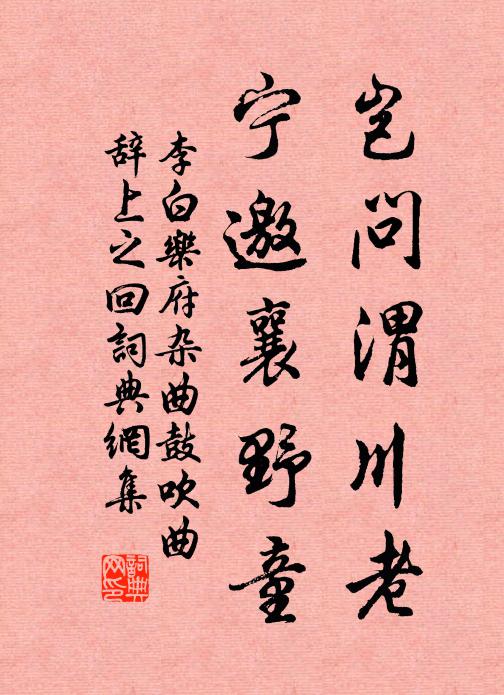 岂问渭川老
宁邀襄野童
李白樂府杂曲鼓吹曲
辞上之回詞典網集
詞典网印